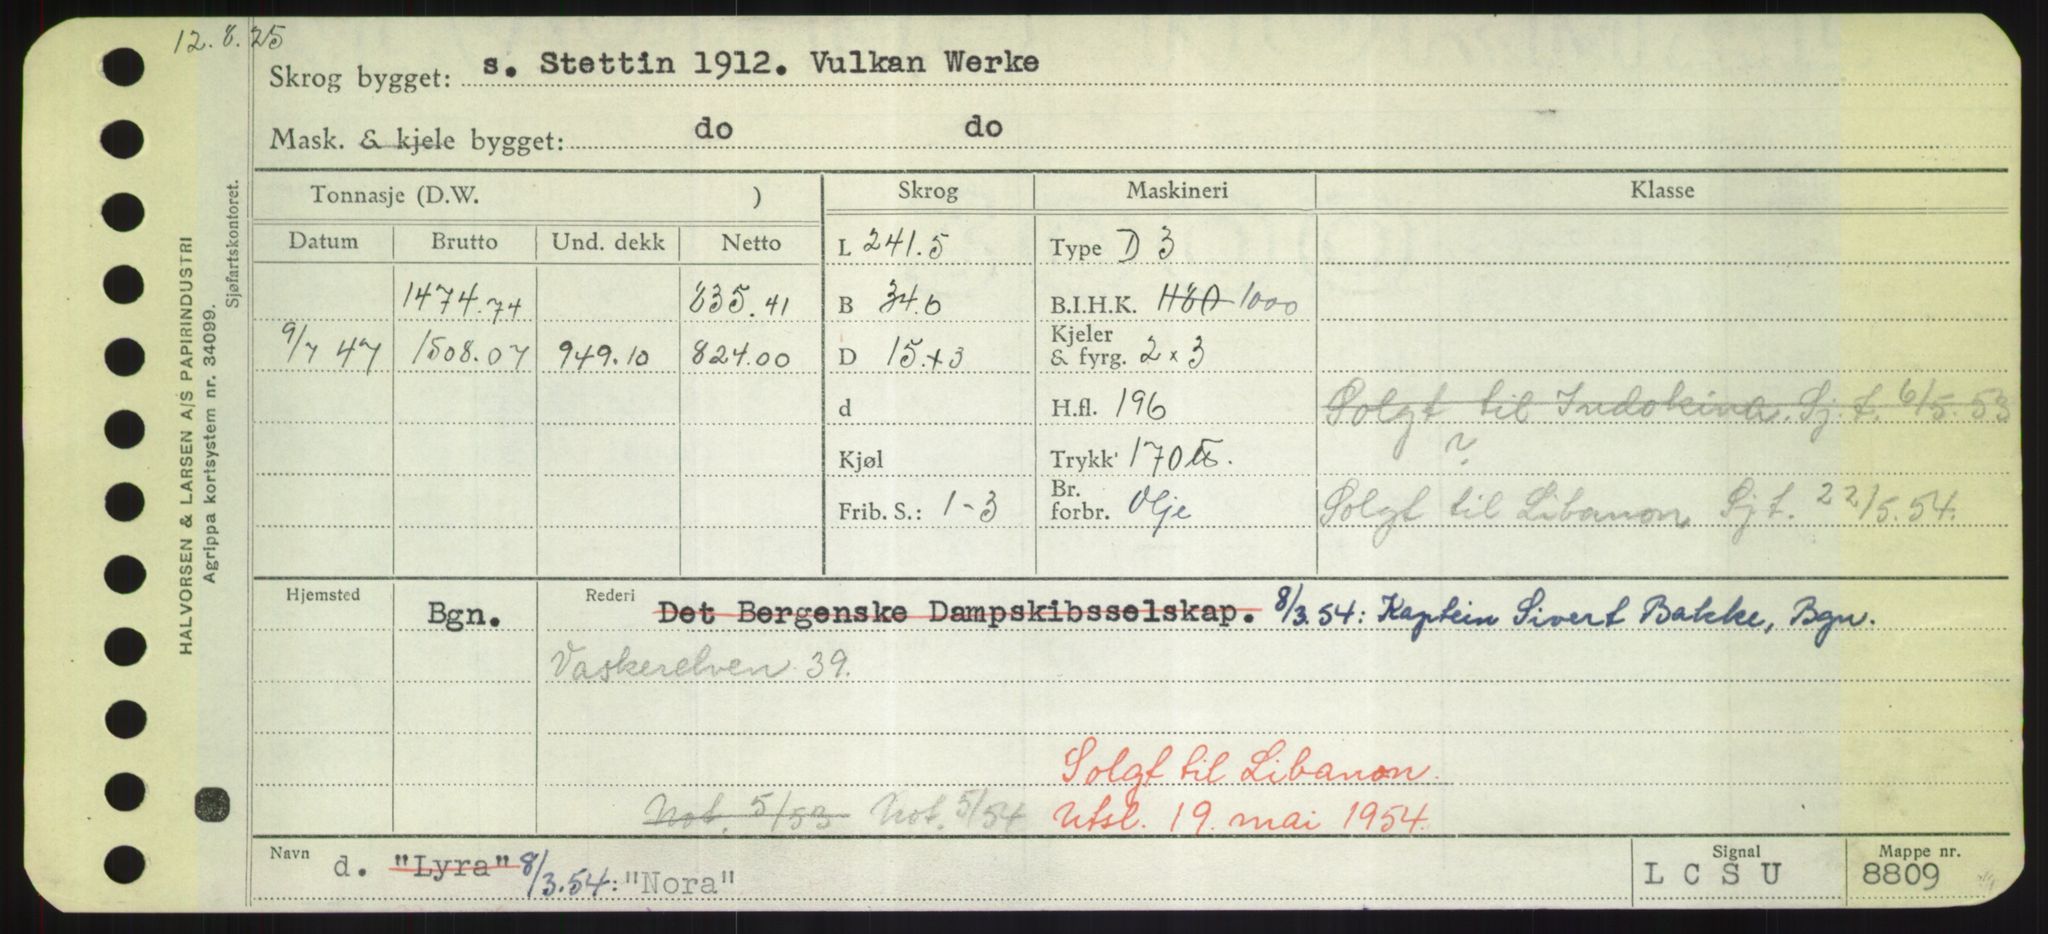 12.8.25
Skrog bygget: s. Stettin 1912. Vulkan Werke
Mask. & kjele bygget: do do
HALVORSEN & LARSEN A/S PAPIRINDUSTRI
Agrippa kortsystem nr. 34099.
Sjøfartskontoret.
Tonnasje (D.W. ) Skrog Maskineri Klasse
Datum Brutto Und. dekk Netto L 241.5 Type D 3
1474.74 835.41 B 34.0 B.I.H.K. 1180 1000
9/7 47 1508.07 949.10 824.00 D 15.x3 Kjeler & fyrg. 2 x 3
d H.fl. 196 Solgt til Indokina. Sj.t. 6/5.53
Kjøl Trykk 170 lb. ?
Frib. S.: 1-3 Br. forbr. Olje Solgt til Libanon Sj t. 22/5.54.
Hjemsted Bgn. Rederi Det Bergenske Dampskibsselskap. 8/3.54: Kaptein Sivert Bakke, Bgn.
Vaskerelven 39.
Solgt til Libanon.
Not. 5/53 Not. 5/54 Utsl. 19. mai 1954.
Navn d. "Lyra" 8/3.54: "Nora" Signal LCSU Mappe nr. 8809